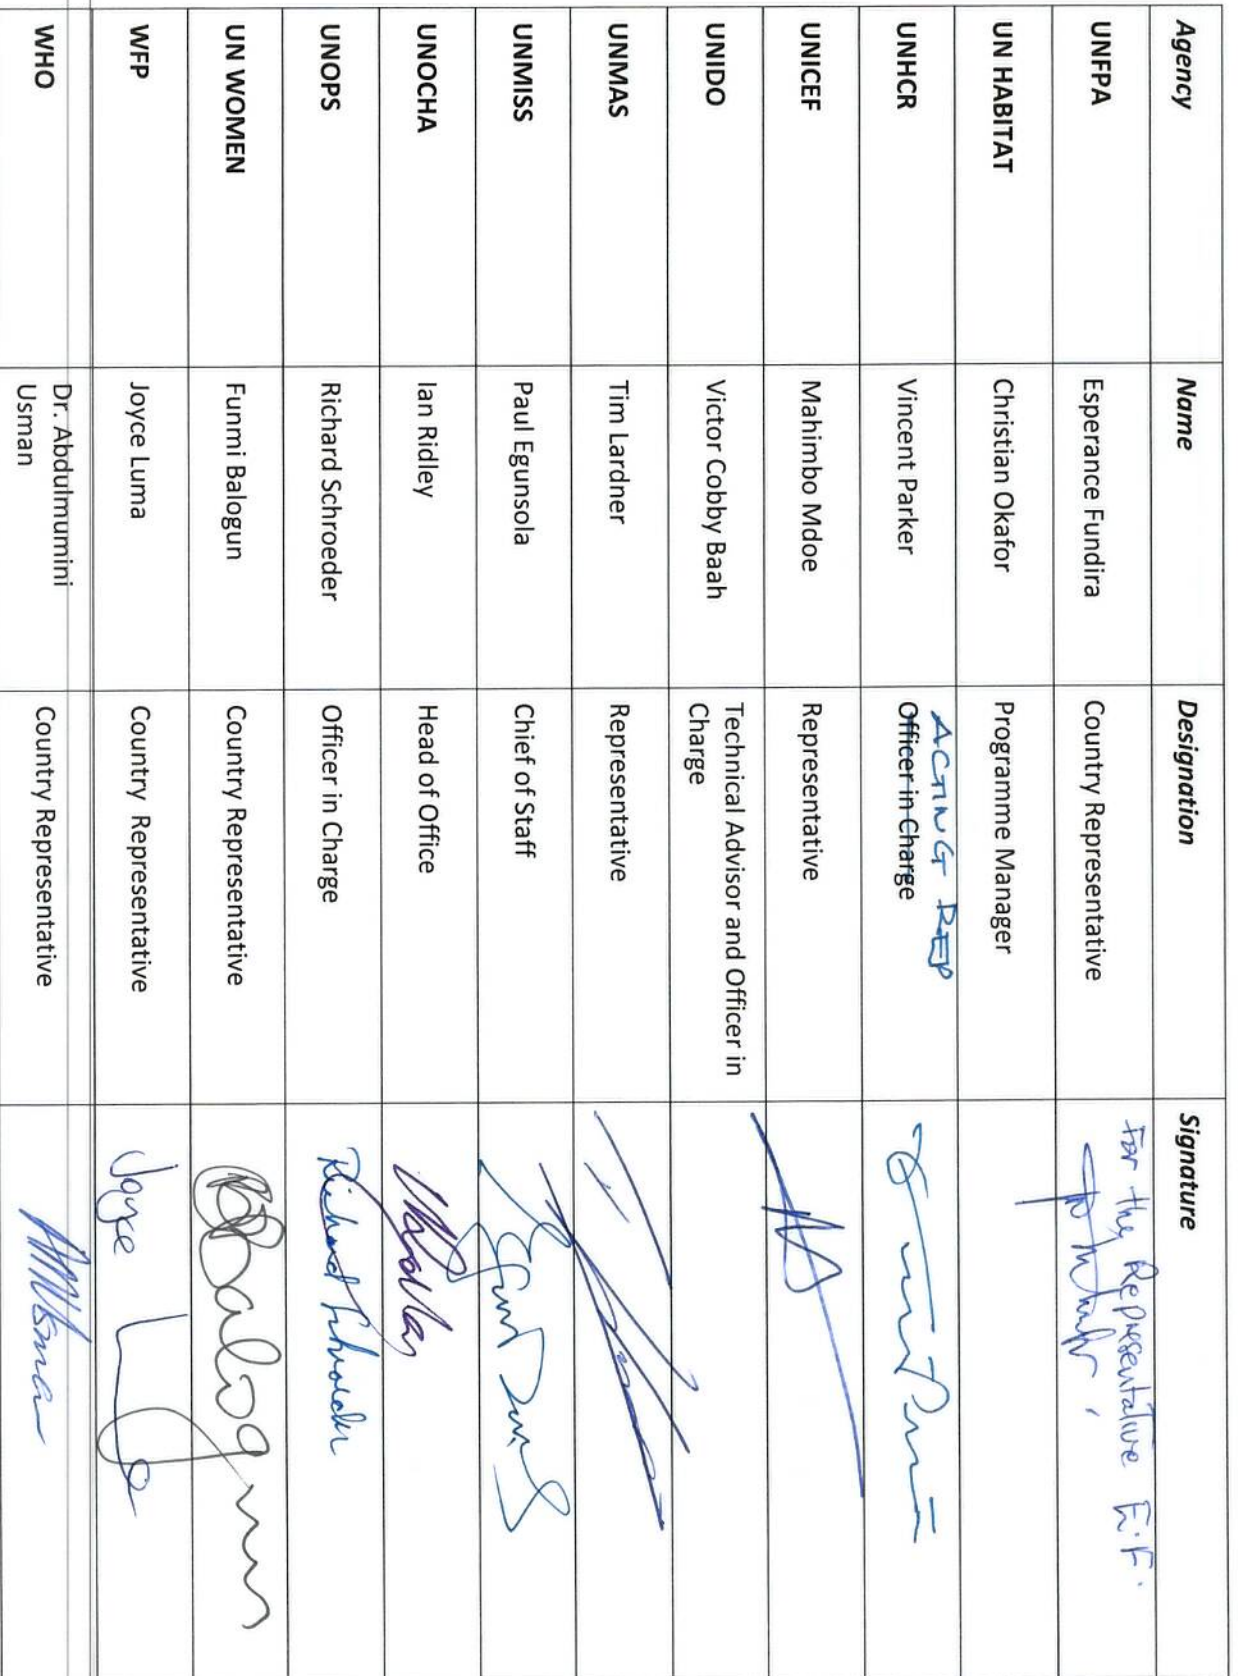 Agency Name Designation Signature
UNFPA Esperance Fundira Country Representative For the Representative E.F.
UN HABITAT Christian Okafor Programme Manager
ACTING REP
UNHCR Vincent Parker Officer in Charge
UNICEF Mahimbo Mdoe Representative
UNIDO Victor Cobby Baah Technical Advisor and Officer in
Charge
UNMAS Tim Lardner Representative
UNMISS Paul Egunsola Chief of Staff
UNOCHA Ian Ridley Head of Office
UNOPS Richard Schroeder Officer in Charge Richard Schroeder
UN WOMEN Funmi Balogun Country Representative Balogun
WFP Joyce Luma Country Representative Joyce
WHO Dr. Abdulmumini
Usman Country Representative